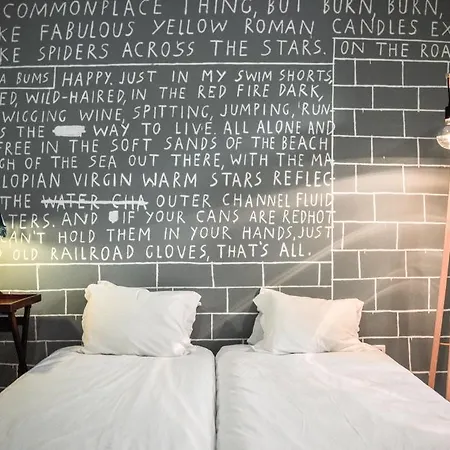 COMMONPLACE THING, BUT BURN, BURN,
KE FABULOUS YELLOW ROMAN CANDLES EX
KE SPIDERS ACROSS THE STARS. ON THE ROA
A BUMS HAPPY. JUST IN MY SWIM SHORTS,
ED, WILD-HAIRED, IN THE RED FIRE DARK,
WIGGING WINE, SPITTING, JUMPING, 'RUN-
S THE WAY TO LIVE. ALL ALONE AND
FREE IN THE SOFT SANDS OF THE BEACH
GH OF THE SEA OUT THERE, WITH THE MA
LOPIAN VIRGIN WARM STARS REFLEC
THE WATER CHA OUTER CHANNEL FLUID
TERS. AND IF YOUR CANS ARE REDHOT
AN'T HOLD THEM IN YOUR HANDS, JUST
OLD RAILROAD GLOVES, THAT'S ALL.